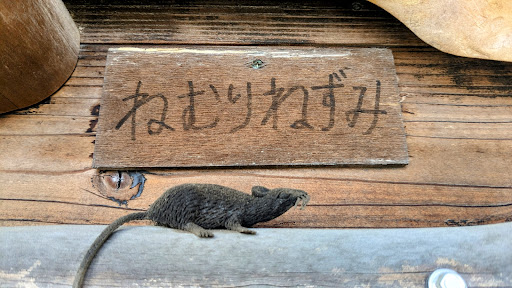 ねむりねずみ